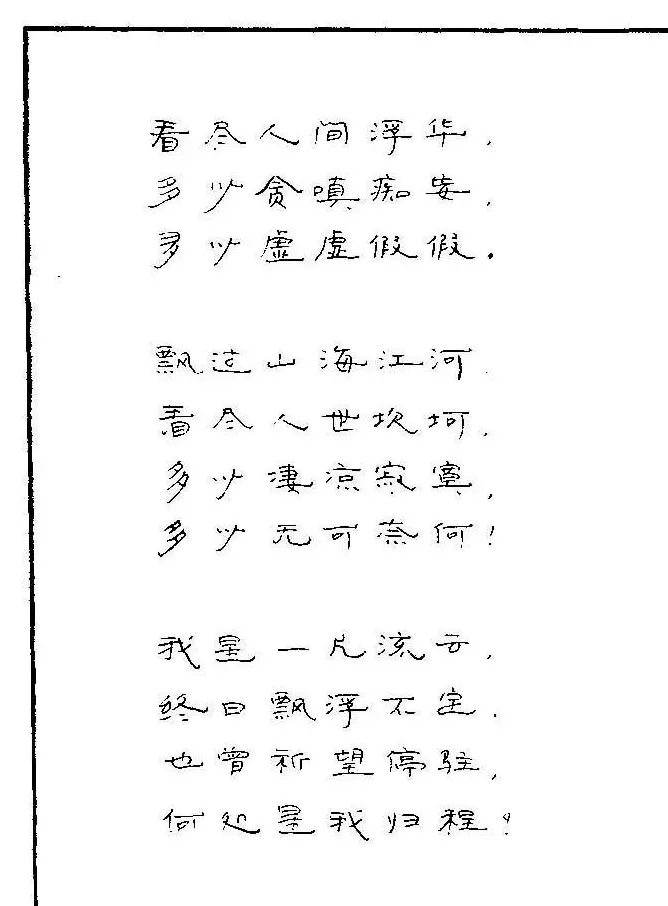 看尽人间浮华，
多少贪嗔痴妄，
多少虚虚假假．
飘过山海江河
看尽人世坎坷，
多少凄凉寂寞，
多少无可奈何！
我是一片流云，
终日飘浮不定．
也曾祈望停驻，
何处是我归程？